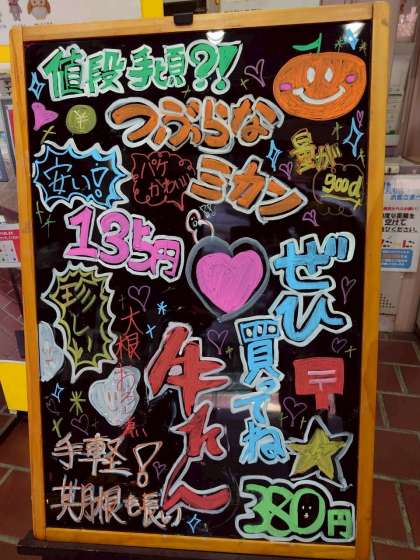 値段手頃?!
つぶらな
ミカン
量が
good
¥
安い!
パケ
かわいい
135円
ぜひ
買ってね
珍しい
大根おろし煮
牛たん
〒
手軽!
期限も長い
380円